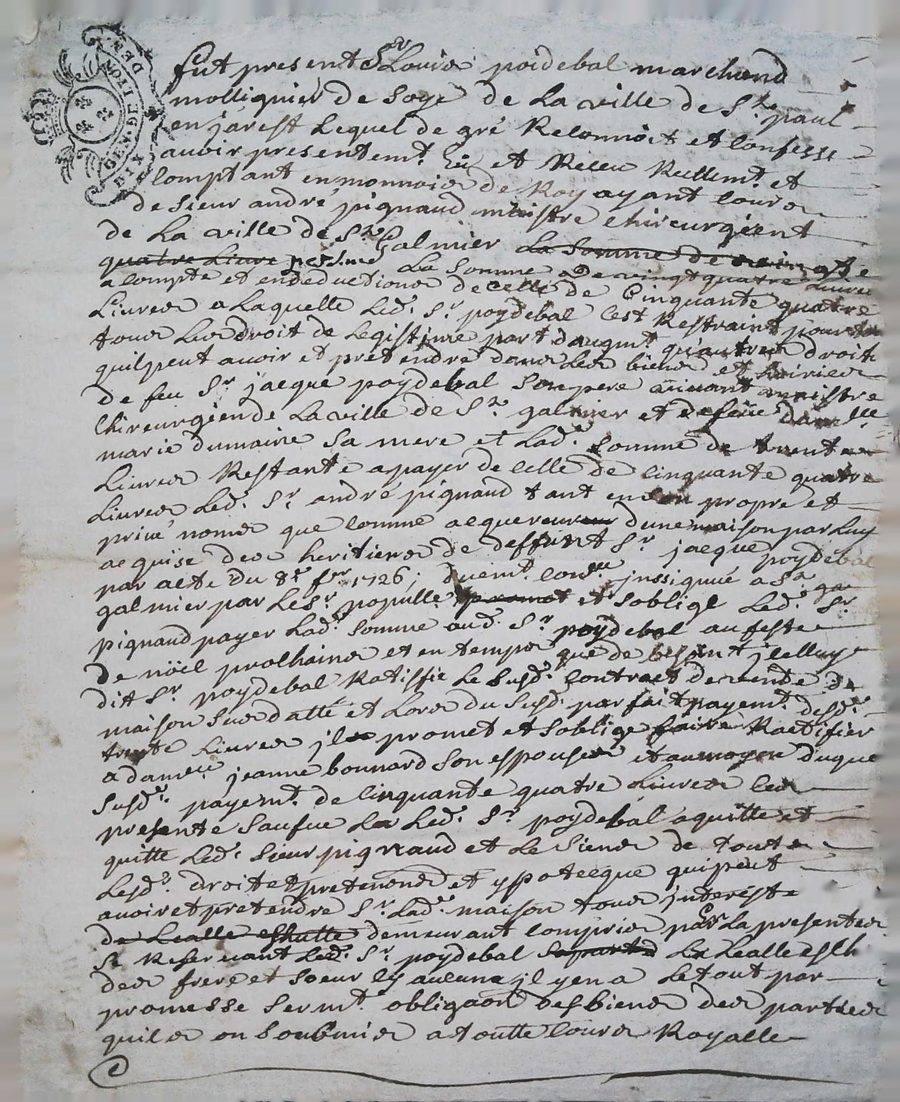 GEN. DE LYON
DIX
fut present Sr Louis poidebal marchand
mollignier de soye de La ville de St paul
en jarest Lequel de gré Reconnoit et confesse
avoir presentemt eü et Receu Reellemt et
comptant en monnois de Roy ayant cours
de sieur andre pignaud maistre chireurgient
de La ville de St Galmier La somme de
quatre Livre La somme de vingt quatre Livres
a compte et en deduction de celle de cinquante quatre
Livres a Laquelle Led. Sr poydebal c'est Restraint pour
tous Les droit de Legistime part daugmt qu'autres droit
quil peut avoir et pretendre dans Les biens et
de feu Sr jacque poydebal son pere vivant maistre
chireurgien de La ville de St galmier et defeüe damlle
marie dumaine sa mere et Lad. somme de trente
Livres Restante a payer de celle de cinquante quatre
Livres Led. Sr andré pignaud tant en son propre et
privé noms que comme acquereur dune maison par Luy
acquise des heritiers de deffunt Sr jacque poydebal
par acte du 8e fer 1726, duemt insignué a St
galmier par Le Sr populle promet et soblige Led. Sr
pignaud payer Lad. somme aud. Sr poydebal au feste
de nöel prochaine et en temps que de besoint jcelluy
dit Sr poydebal Ratiffie Le susd. contract de vende de
maison susdatté et Lors du susd. parfait payemt desd.
trente Livres jl promet et soblige faire Ractifier
a damlle jeanne bonnard son espouse et au moyen duque
susd. payemt de cinquante quatre Livres Les
presente Led. Sr poydebal aquitte et
quitte Led. sieur pignaud et Le siens de toute
Lesd. droit et pretentions et ypotecque quil peut
avoir et pretendre Sr Lad. maison tous jnterest
de Lealle eshutte demeurant compris par La presentes
se Reservant Led. Sr poydebal sa part La Lealle esch
des frere et soeur sy aucuns jl yen a Le tout par
promesse sermt obligaon des biens des parties
quils on soubmis a toutte cours Royalle